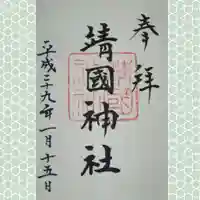 奉拝
靖國神社
平成二十九年一月十五日